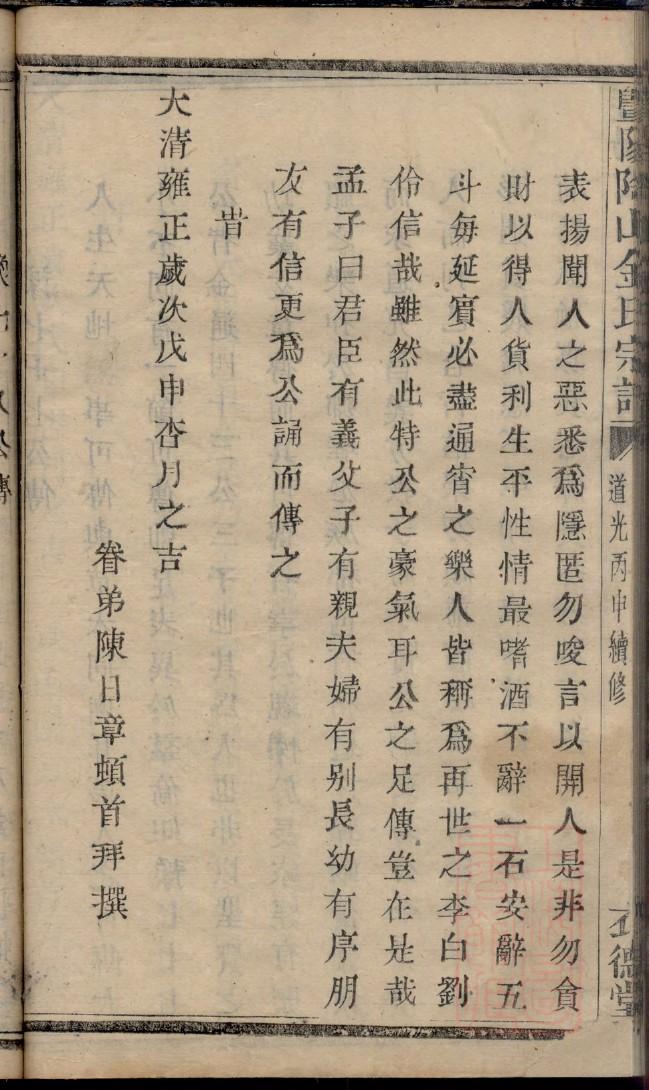 暨陽陶山金氏宗譜
道光丙申續修
德堂
表揚聞人之惡悉爲隱匿勿唆言以開人是非勿貪
財以得人貨利生平性情最嗜酒不辭一石安辭五
斗每延賓必盡通宵之樂人皆稱爲再世之李白劉
伶信哉雖然此特公之豪氣耳公之足傳豈在是哉
孟子曰君臣有義父子有親夫婦有别長幼有序朋
友有信更爲公誦而傳之
旹
大清雍正歲次戊申杏月之吉
眷弟陳日章頓首拜撰